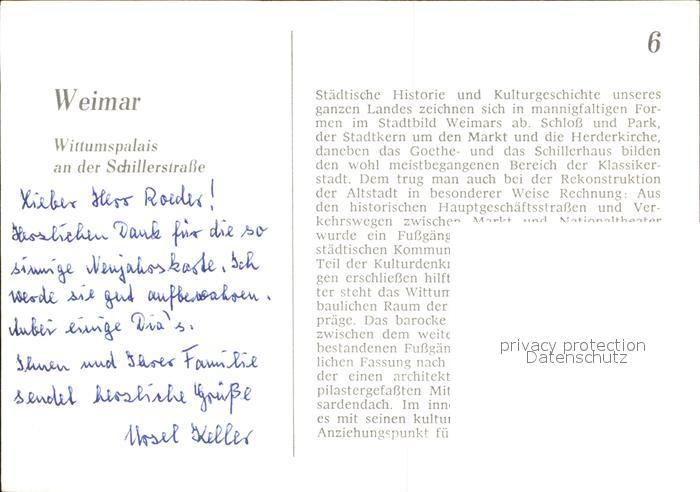 6
Weimar
Wittumspalais
an der Schillerstraße
Lieber Herr Roeder!
Herzlichen Dank für die so
sinnige Neujahrskarte. Ich
werde sie gut aufbewahren.
Anbei einige Dia's.
Ihnen und Ihrer Familie
sendet herzliche Grüße
Ursel Keller
Städtische Historie und Kulturgeschichte unseres
ganzen Landes zeichnen sich in mannigfaltigen For-
men im Stadtbild Weimars ab. Schloß und Park,
der Stadtkern um den Markt und die Herderkirche,
daneben das Goethe- und das Schillerhaus bilden
den wohl meistbegangenen Bereich der Klassiker-
stadt. Dem trug man auch bei der Rekonstruktion
der Altstadt in besonderer Weise Rechnung: Aus
den historischen Hauptgeschäftsstraßen und Ver-
kehrswegen zwischen Markt und Nationaltheater
wurde ein Fußgäng
städtischen Kommun
Teil der Kulturdenkr
gen erschließen hilft
ter steht das Wittum
baulichen Raum der
präge. Das barocke
zwischen dem weite
bestandenen Fußgän
lichen Fassung nach
der einen architekt
pilastergefaßten Mit
sardendach. Im inn
es mit seinen kultur
Anziehungspunkt fü
privacy protection
Datenschutz